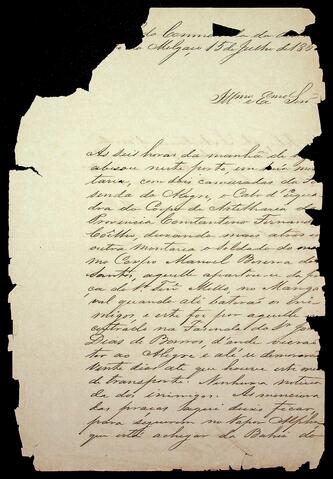 do Commando da
do Melgaço 15 de Julho de 186
Illmo e Exmo Snr
As seis horas da manhã de
abicou neste porto em uma mon
taria, com dois camaradas da fa
senda do Alegre, o Cabo d'Esqua
dra do Corpo de Artilharia da
Provincia Constantino Fernan
Coêlho, deixando mais atras em
outra montaria o soldado do mes
mo Corpo Manoel Pereira dos
Santos, aquelle apartou-se da for
ça do 1º Tenº Mello, no Manga
val quando ali baterão os ini
migos, e este foi por aquelle
encontrado na Fazenda do Snr Jo
Dias de Barros, d'onde vierão
ter ao Alegre e ali se demorarão
vinte dias até que houve este meio
de transporte. Nenhuma noticia
da dos inimigos. As mencionadas
praças faço aqui ficar
para seguirem no Vapor Alpha
que está a chegar da Bahia do